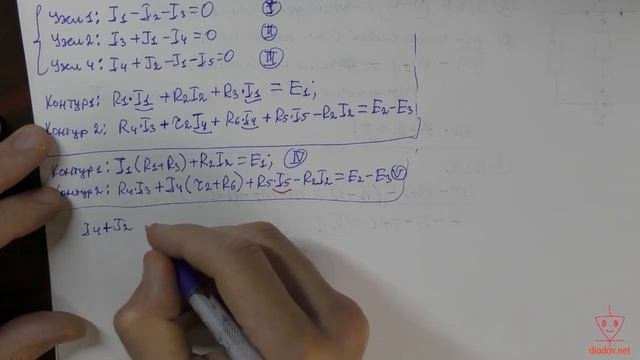 Узел 1: I₁ - I₂ - I₃ = 0 Ⅰ
Узел 2: I₃ + J₁ - I₄ = 0 Ⅱ
Узел 4: I₄ + J₂ - J₁ - I₅ = 0 Ⅲ
Контур 1: R₁·I₁ + R₂I₂ + R₃·I₁ = E₁;
Контур 2: R₄·I₃ + r₂I₄ + R₆I₄ + R₅·I₅ - R₂I₂ = E₂ - E₃
Контур 1: I₁(R₁+R₃) + R₂I₂ = E₁; Ⅳ
Контур 2: R₄·I₃ + I₄(r₂+R₆) + R₅·I₅ - R₂I₂ = E₂ - E₃ Ⅴ
I₄ + J₂
diodov.net